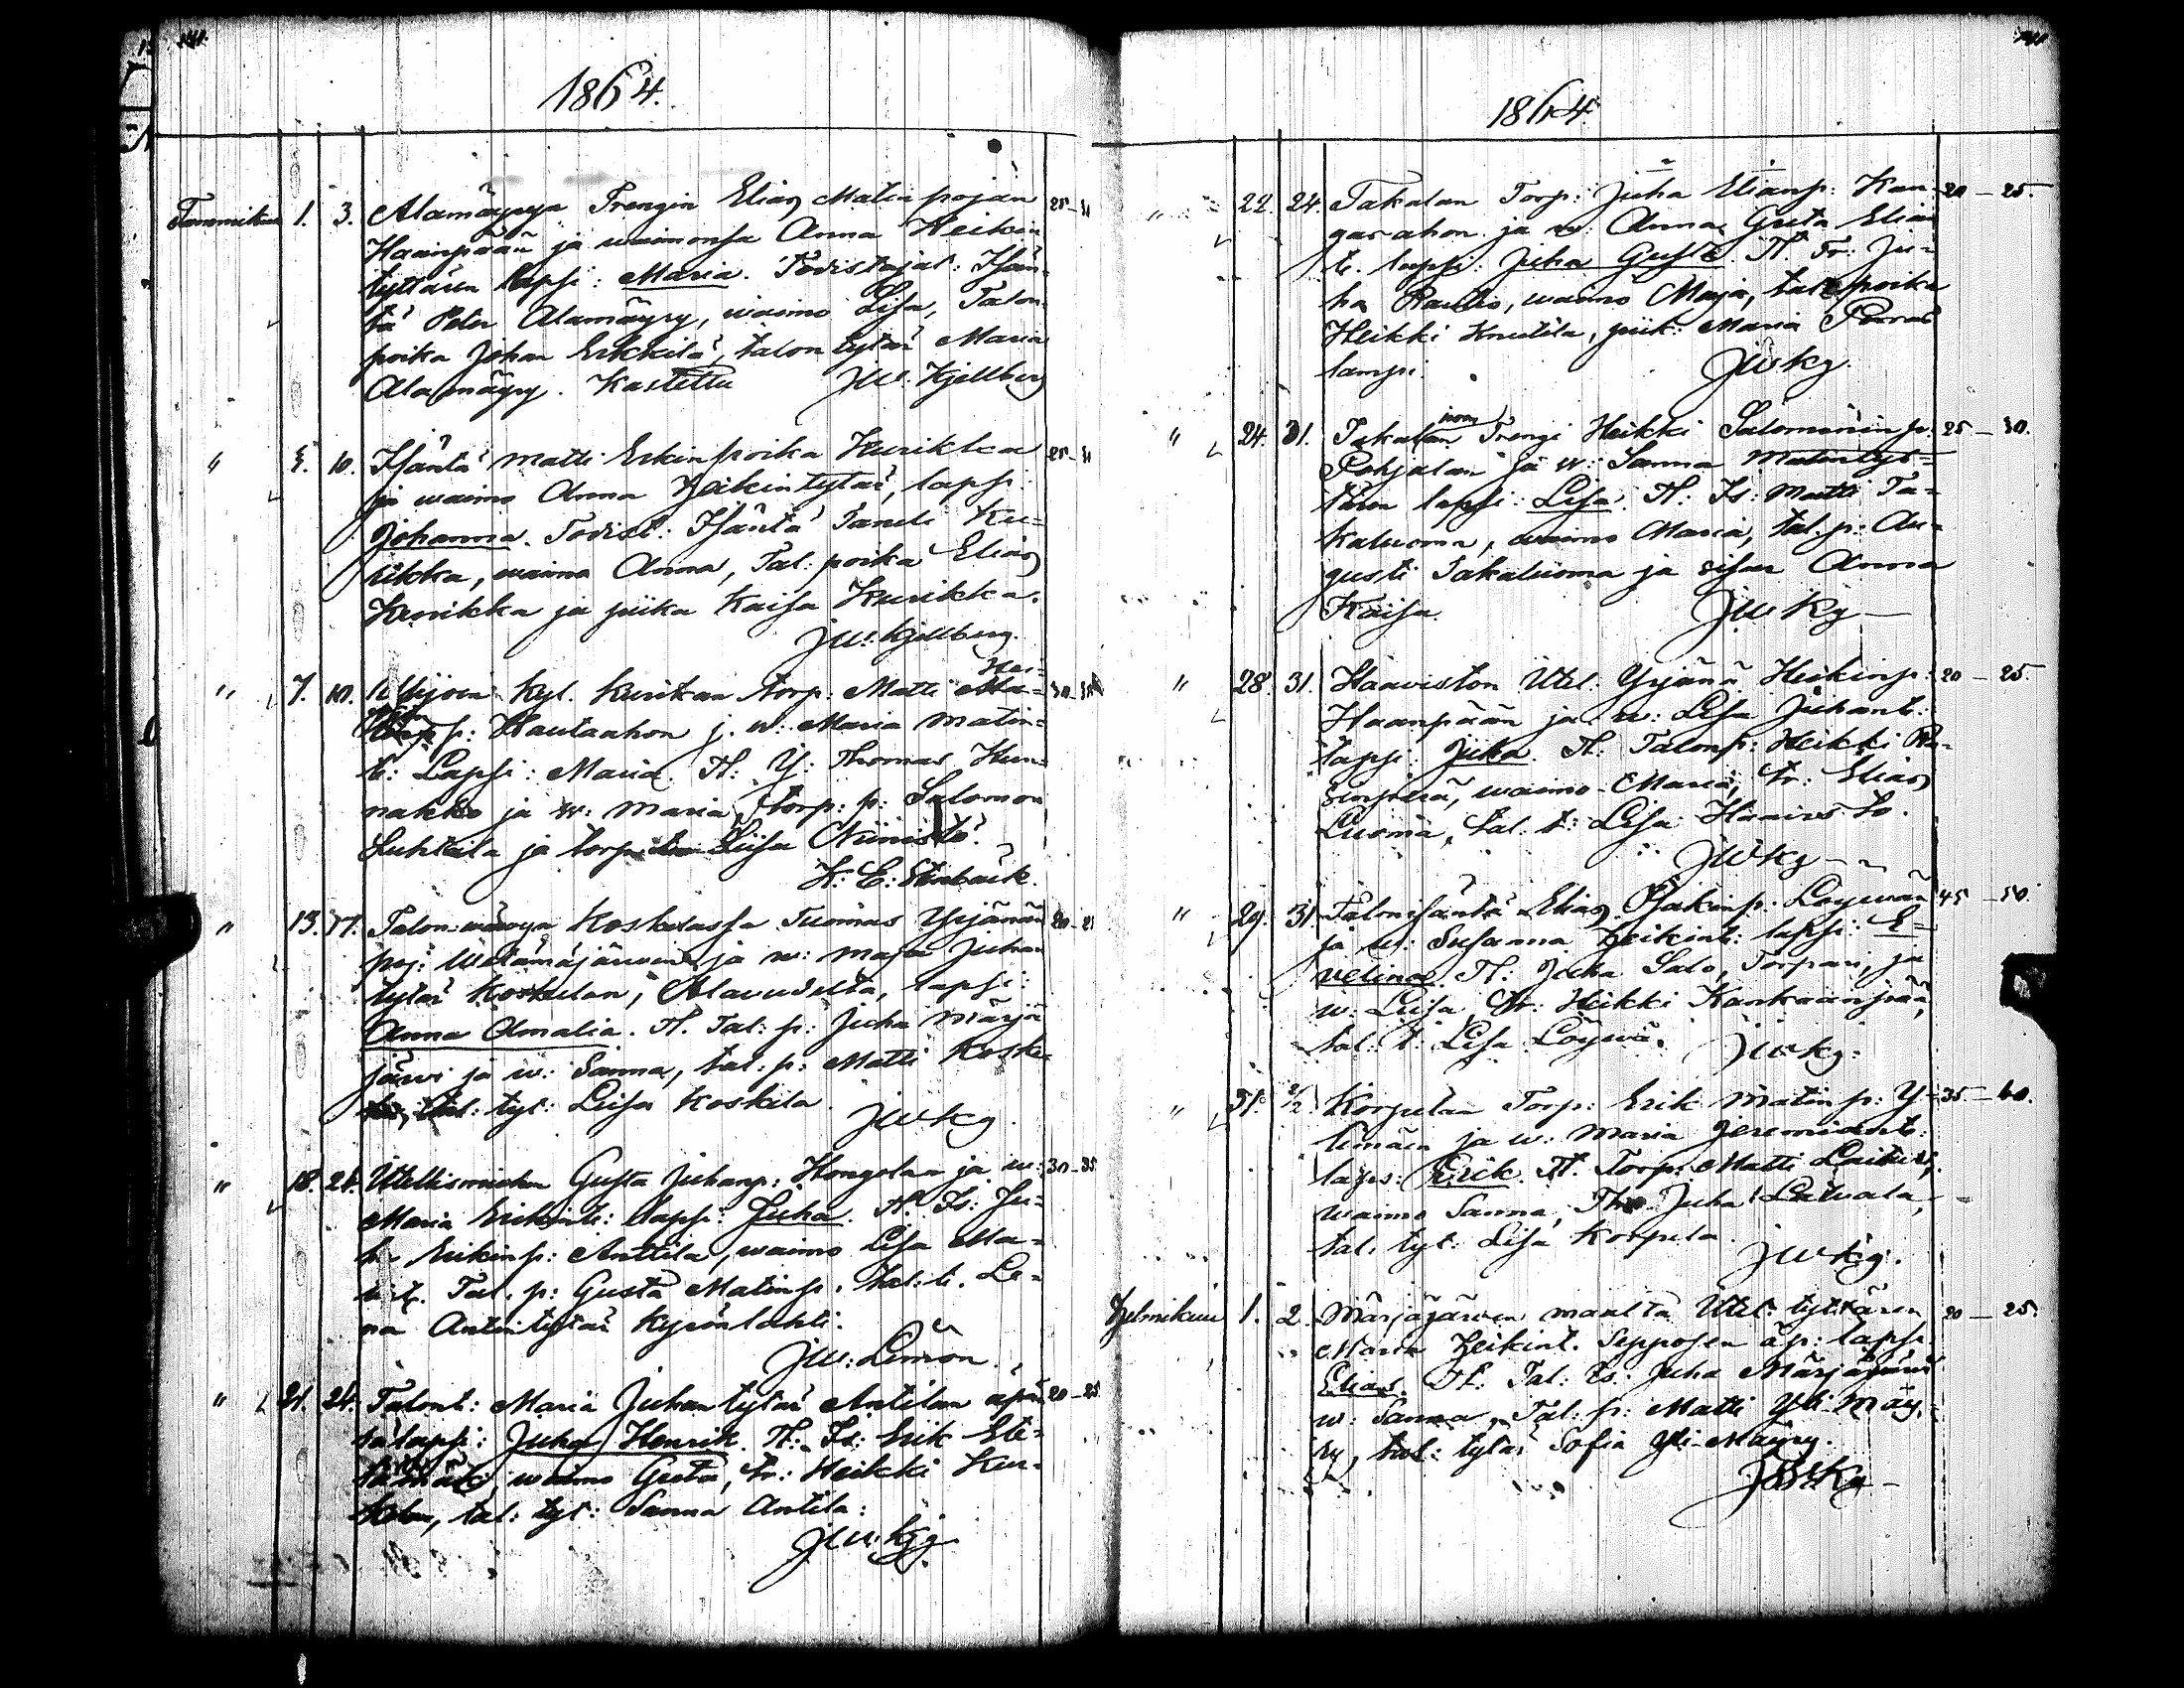 1864.
Tammikuu 1. 3. Alamäyryn Trengin Elias Matin pojan 25 –
Haanpään ja waimonsa Anna Heikin
tyttären lapsi: Maria. Todistajat: Isän
tä Peter Alamäyry, waimo Lisa, Talon
poika Johan Erkkilä, talon tytär Maria
Alamäyry. Kastettu JW. Kjellberg
" 5. 10. Isäntä Matti Erkinpoika Kurikka 25 –
ja waimo Anna Heikintytär, lapsi:
Johanna. Todist: Isäntä Taneli Ku=
rikka, waimo Anna, Tal: poika Elias
Kurikka ja piika Kaisa Kurikka.
JW. Kjellberg.
" 7. 10. kyl. Kurikan torp: Matti 30 –
p: Hautaahon j. w: Maria Matin=
t: Lapsi: Maria. Tt: Y: Thomas Kun
nakko ja w: Maria, torp: p: Salomon
Luhtala ja torp Liisa Niinistö.
K: E: Stenbäck.
" 13. 17. Talon wäwyn Koskelassa Tuomas Yrjänän 20 –
poj: ja w: Maja Juhan
tytär Koskelan, Alavudelta, lapsi:
Anna Amalia. Tt. Tal: p: Juha Märjä
järwi ja w: Sanna, tal: p: Matti Koske
la, tal: tyt: Liisa Koskela
JWKg.
" 18. 24. Itellismiehen Gusta Juhanp: Hongolan ja w: 30 – 35
Maria Erikint: lapsi: Juha. Tt. Is: Ju=
ha Erikinp: Anttila, waimo Lisa Ma=
Tal. p: Gusta Matinp. tal: t. Le=
na Antintytär Kyrönlahti.
JW: Limón.
" 21. 24. Talont: Maria Juhantytär Antilan äpä 20 – 25
rä lapsi: Juha Henrik. Tt: Is: Erik
waimo Greta, tr: Heikki
tal: tyt: Sanna Antila:
JW. Kjg.
1864.
" 22. 24. Takalan Torp: Juha Elianp: Kan 20 – 25.
gasahon ja w: Anna Greta Elian
t. lapsi: Juha Gusta. Tt. Tr: Ju=
ha Rauto, waimo Maja, tal poika
Heikki Knuutila, piik: Maria Porras
lampi. JWKg.
" 24. 31. Takaluoman Trengi Heikki Salomonin p: 25 – 30.
Pohjalan ja w: Sanna Matintyt=
tären lapsi: Lisa. Tt: Is: Matti Ta=
kaluoma, waimo Maria, tal. p: Au=
gusti Takaluoma ja sisar Anna
Kaisa. JWKg –
" 28. 31. Haaviston Itel: Yrjänä Heikinp: 20 – 25.
Haanpään ja w: Lisa Juhant:
lapsi: Juha. Tt: Talonp: Heikki
waimo Maria, tr: Elias
Luoma, tal: t: Lisa Haavisto.
JWKg –
" 29. 31. Talonisäntä Elias Isakinp: Löywän 45 – 50.
ja w: Susanna Heikint: lapsi: E=
velina. Tt: Juha Salo, Torpari, ja
w: Liisa, Tr: Heikki Kankaanpää,
tal: t: Lisa Löywä. JWKg:
" 31. 2/2 Korpelan Torp: Erik Matin p: Y= 35 – 40.
linäen ja w: Maria Jeremiant:
laps: Erik. Tt. Torp: Matti
waimo Sanna, Juha
tal. tyt: Lisa Korpela
JWKg.
Helmikuu 1. 2. Märjäjärwen maalta Itel: tyttären 20 – 25.
Maria Heikint. Sepposen äp: lapsi
Elias. Tt: Tal: Is: Juha Märjäjärwi
w: Sanna, Tal: p: Matti Yli-Mäy
ry, tal: tytär Sofia Yli-Mäyry.
JWKg –